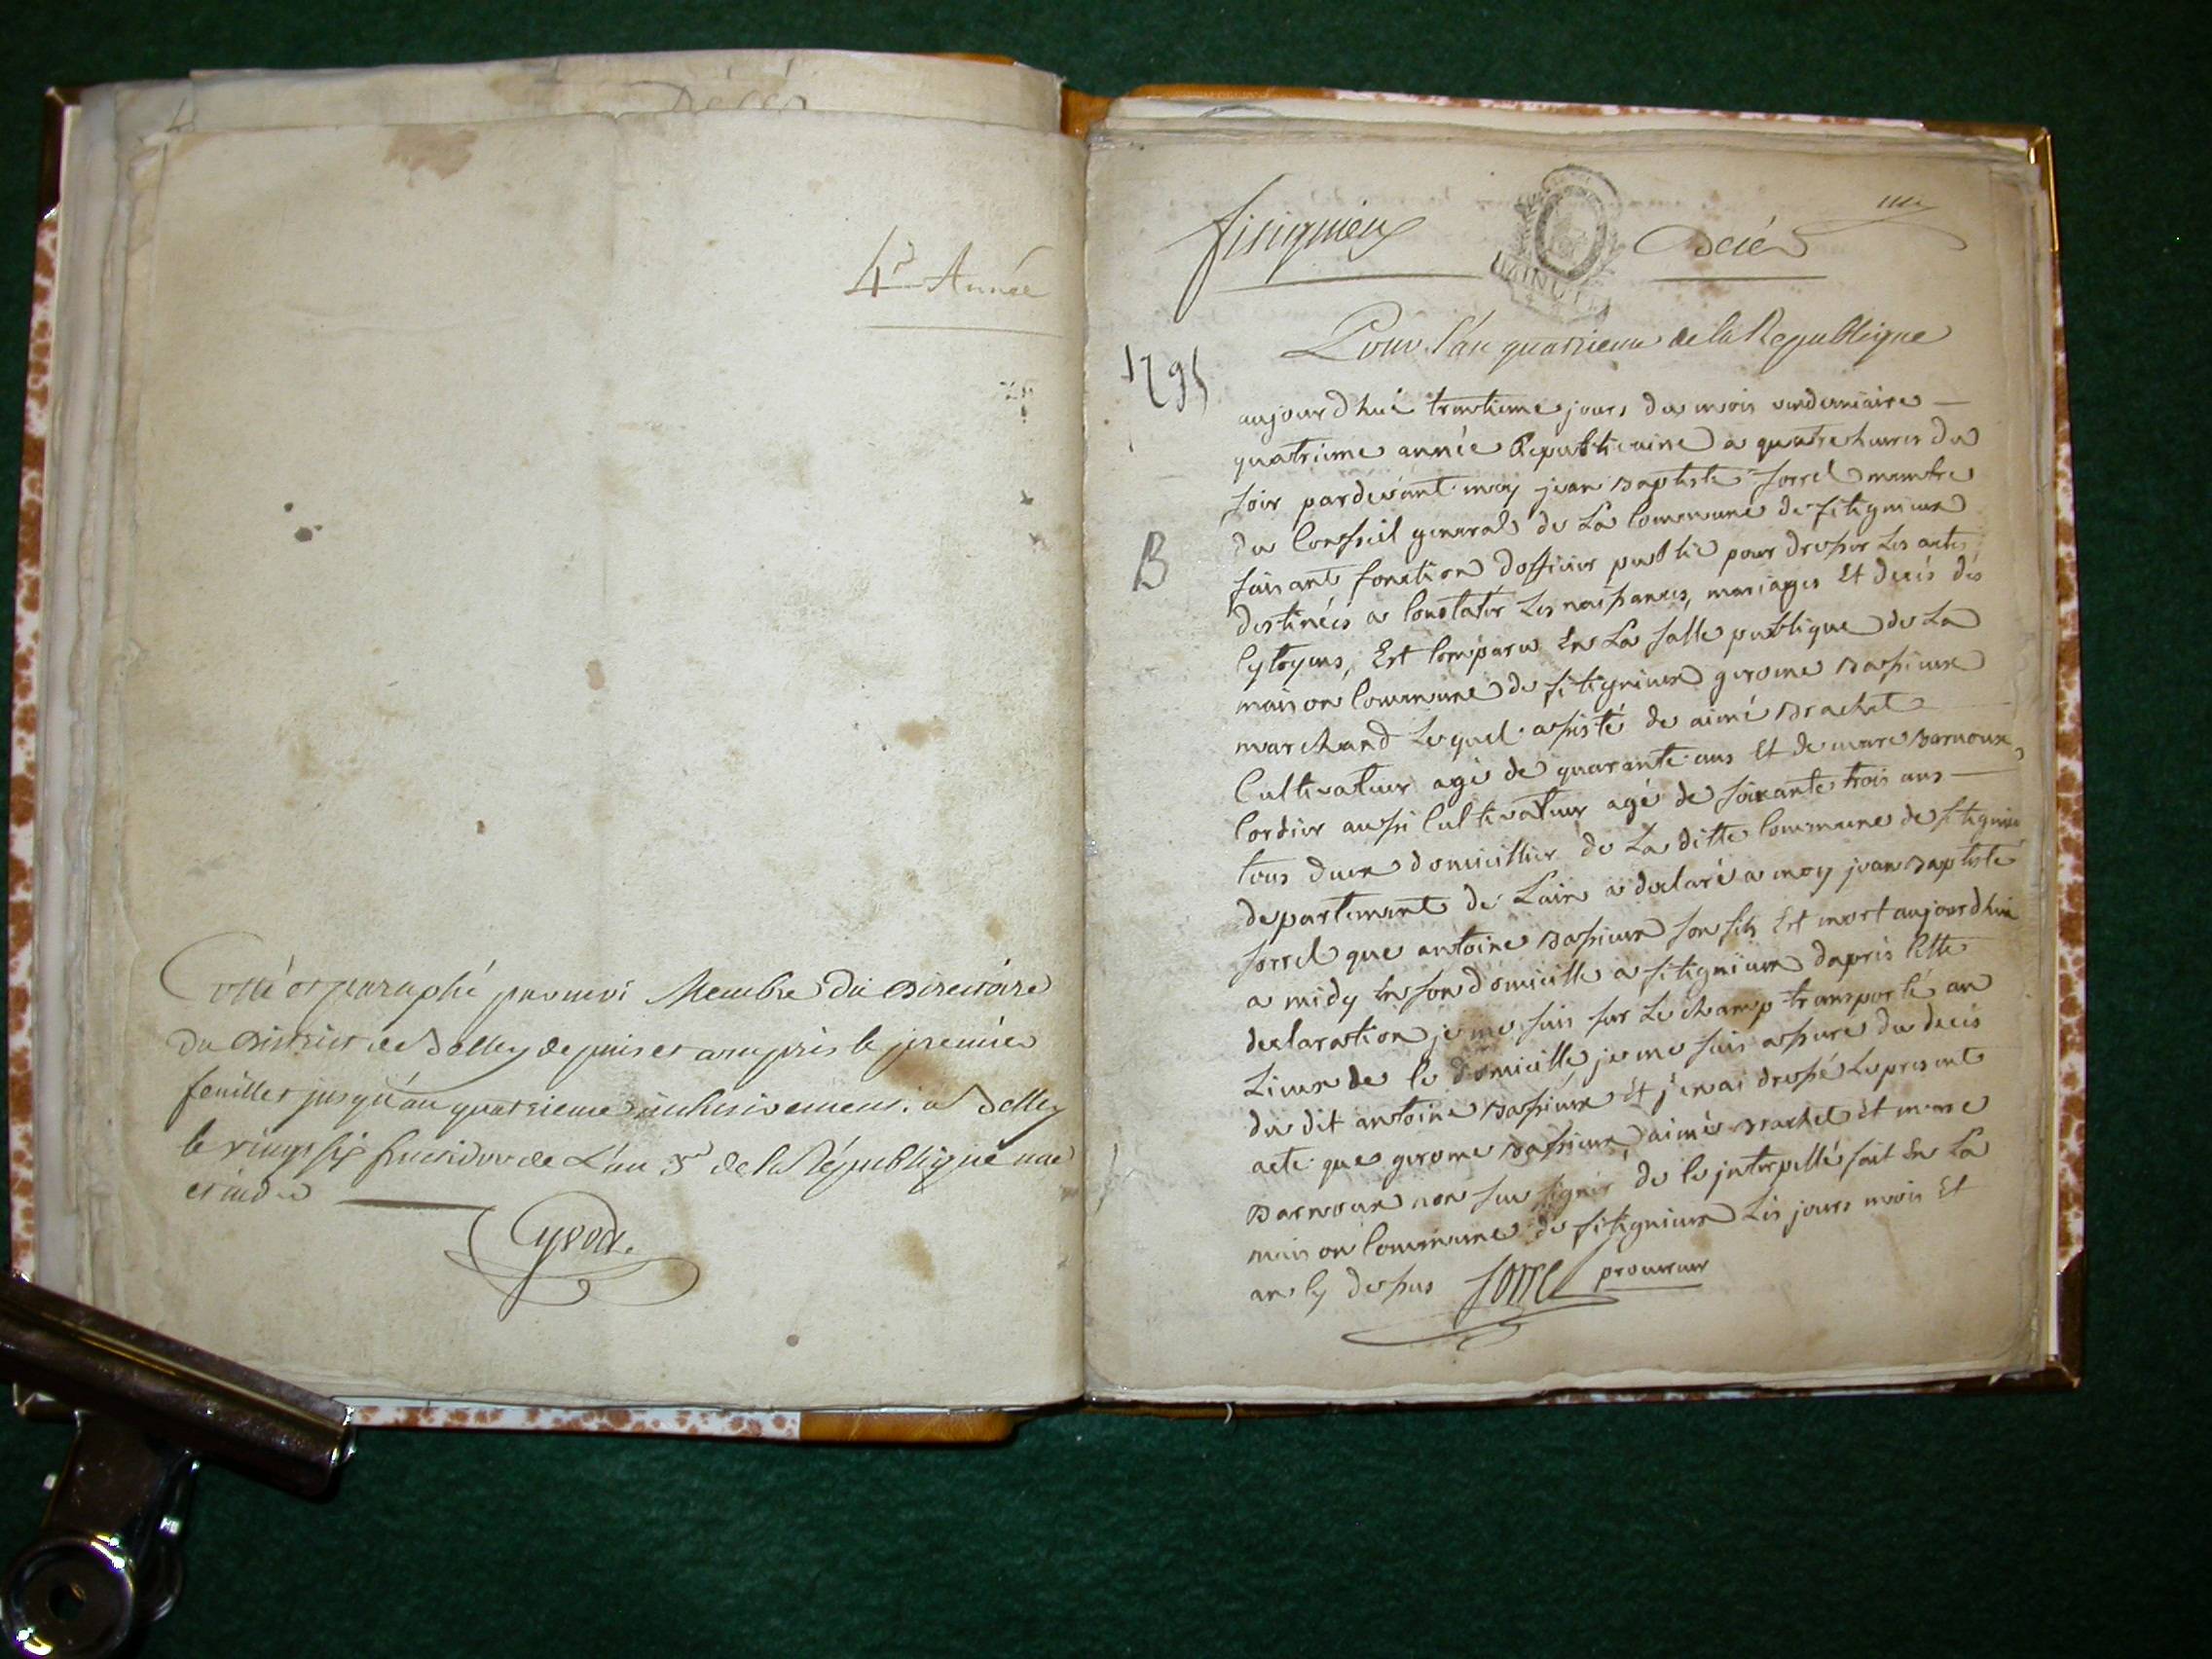 4e Année
Cotté et paraphé par moi Membre du Directoire
du District de Belley depuis et compris le premier
feuillet jusqu'au quatrieme inclusivement. a Belley
le vingt six fructidor de L'an 3e de la République une
et ind.
1795
B
Décés
MINUTE
Pour l'an quatrieme de la Republique
aujourdhui trantieme jours du mois vendemiaire
quatrieme année Republicaine a quatre heures du
soir pardevant moy jean Baptiste Sorrel membre
du Conseil general de La Commune de fitignieux
faisant fonction dofficier public pour dresser Les actes
destinées a Constater Les naissances, mariages Et decés des
Cytoyens, Est Comparu En La Salle publique de La
maison Commune de fitignieux gerome Bassieux
marchand Lequel assisté de aimé Brachet
Cultivateur agé de quarante ans Et de marc Barnoux
Cordier aussi Cultivateur agé de soixante trois ans
tous deux domicillier de La ditte Commune de fitignieu
departement de Lain a declaré a moy jean Baptiste
Sorrel que antoine Bassieux son fils Est mort aujourdhui
a midy En son domicille a fitignieux dapres Cette
declaration je me suis sur Le champ transporté au
Lieux de Ce domicille, je me suis assuré du decés
du dit antoine Bassieux Et j'enai dressé Le present
acte que gerome Bassieux, aimé Brachet Et marc
Barnoux non sue signer de Ce jnterpellés fait En La
maison Commune de fitignieux Les jours mois Et
an Cy dessus Sorrel procureur